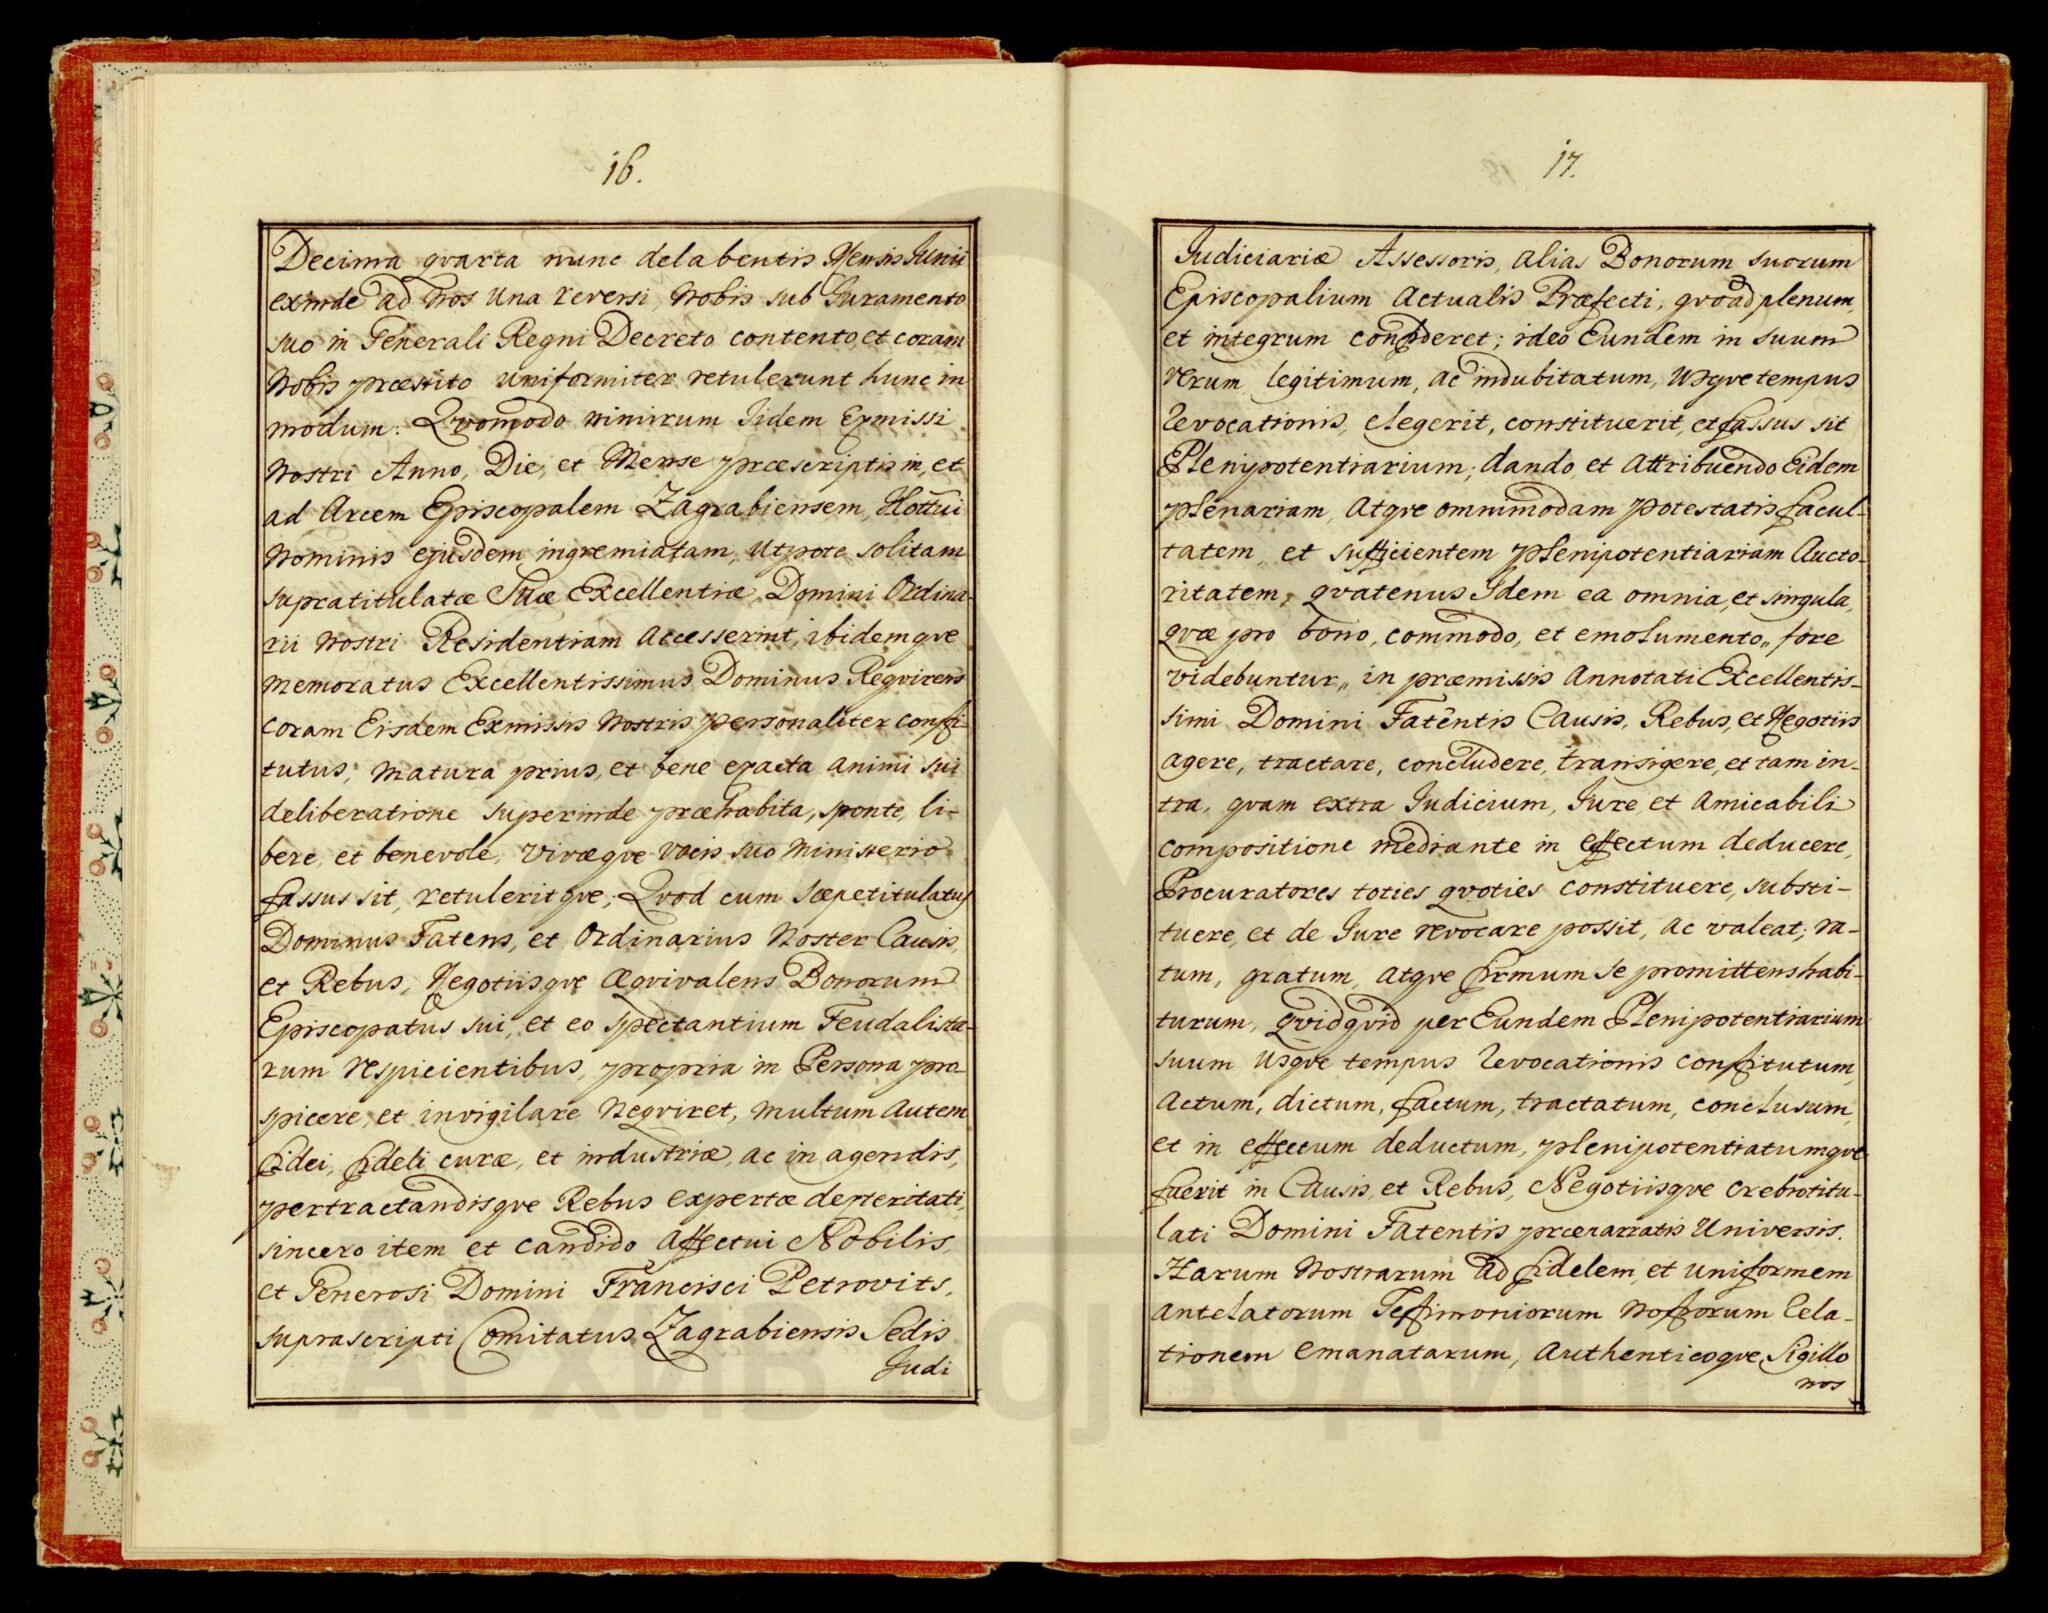 16.
Decima qvarta nunc delabentis Mensis Junii
exinde ad Nos una reversi, Nobis sub Juramento
suo in Generali Regni Decreto contento, et coram
Nobis præstito uniformiter retulerunt hunc in
modum: Qvomodo nimirum Iidem Exmissi
Nostri Anno, Die, et Mense præscriptis in, et
ad Arcem Episcopalem Zagrabiensem, Hottui
Nominis ejusdem ingremiatam, utpote solitam
supratitulatæ Suæ Excellentiæ Domini Ordina-
rii Nostri Residentiam accesserint, ibidemqve
memoratus Excellentissimus Dominus Reqvirens
coram Eisdem Exmissis Nostris personaliter consti-
tutus, matura prius, et bene exacta animi sui
deliberatione superinde præhabita, sponte, li-
bere, et benevole, vivæqve vocis suo ministerio
fassus sit, retuleritqve; Qvod cum sæpetitulatus
Dominus Fatens, et Ordinarius Noster Causis,
et Rebus, Negotiisqve æqvivalens Bonorum
Episcopatus sui, et eo spectantium Feudalista-
rum respicientibus, propria in Persona pro-
spicere, et invigilare neqviret, multum autem
fidei, fideli curæ, et industriæ, ac in agendis,
pertractandisqve Rebus expertæ dexteritati,
sincero item et candido affectui Nobilis,
et Generosi Domini Francisci Petrovits,
suprascripti Comitatus Zagrabiensis Sedis
Judi
17.
Judiciariæ Assessoris, alias Bonorum suorum
Episcopalium Actualis Præfecti, qvoad plenum,
et integrum confideret; ideo Eundem in suum
verum, legitimum, ac indubitatum, usqve tempus
revocationis, elegerit, constituerit, et fassus sit
Plenipotentiarium; dando, et attribuendo Eidem
plenariam, atqve omnimodam potestatis facul-
tatem, et sufficientem plenipotentiariam Aucto-
ritatem, qvatenus Idem ea omnia, et singula,
qvæ pro bono, commodo, et emolumento,, fore
videbuntur,, in præmissis annotati Excellentis-
simi Domini Fatentis Causis, Rebus, et Negotiis
agere, tractare, concludere, transigere, et tam in-
tra, qvam extra Judicium, Jure, et amicabili
compositione mediante in effectum deducere,
Procuratores toties qvoties constituere, substi-
tuere, et de Jure revocare possit, ac valeat; ra-
tum, gratum, atqve firmum se promittens habi-
turum, qvidqvid per Eundem Plenipotentiarium
suum usqve tempus revocationis constitutum,
actum, dictum, factum, tractatum, conclusum,
et in effectum deductum, plenipotentiatumqve
fuerit in Causis, et Rebus, Negotiisqve crebrotitu-
lati Domini Fatentis prænarratis Universis.
Harum Nostrarum ad fidelem, et uniformem
antelatorum Testimoniorum Nostrorum rela-
tionem emanatarum, Authenticoqve Sigillo
nos